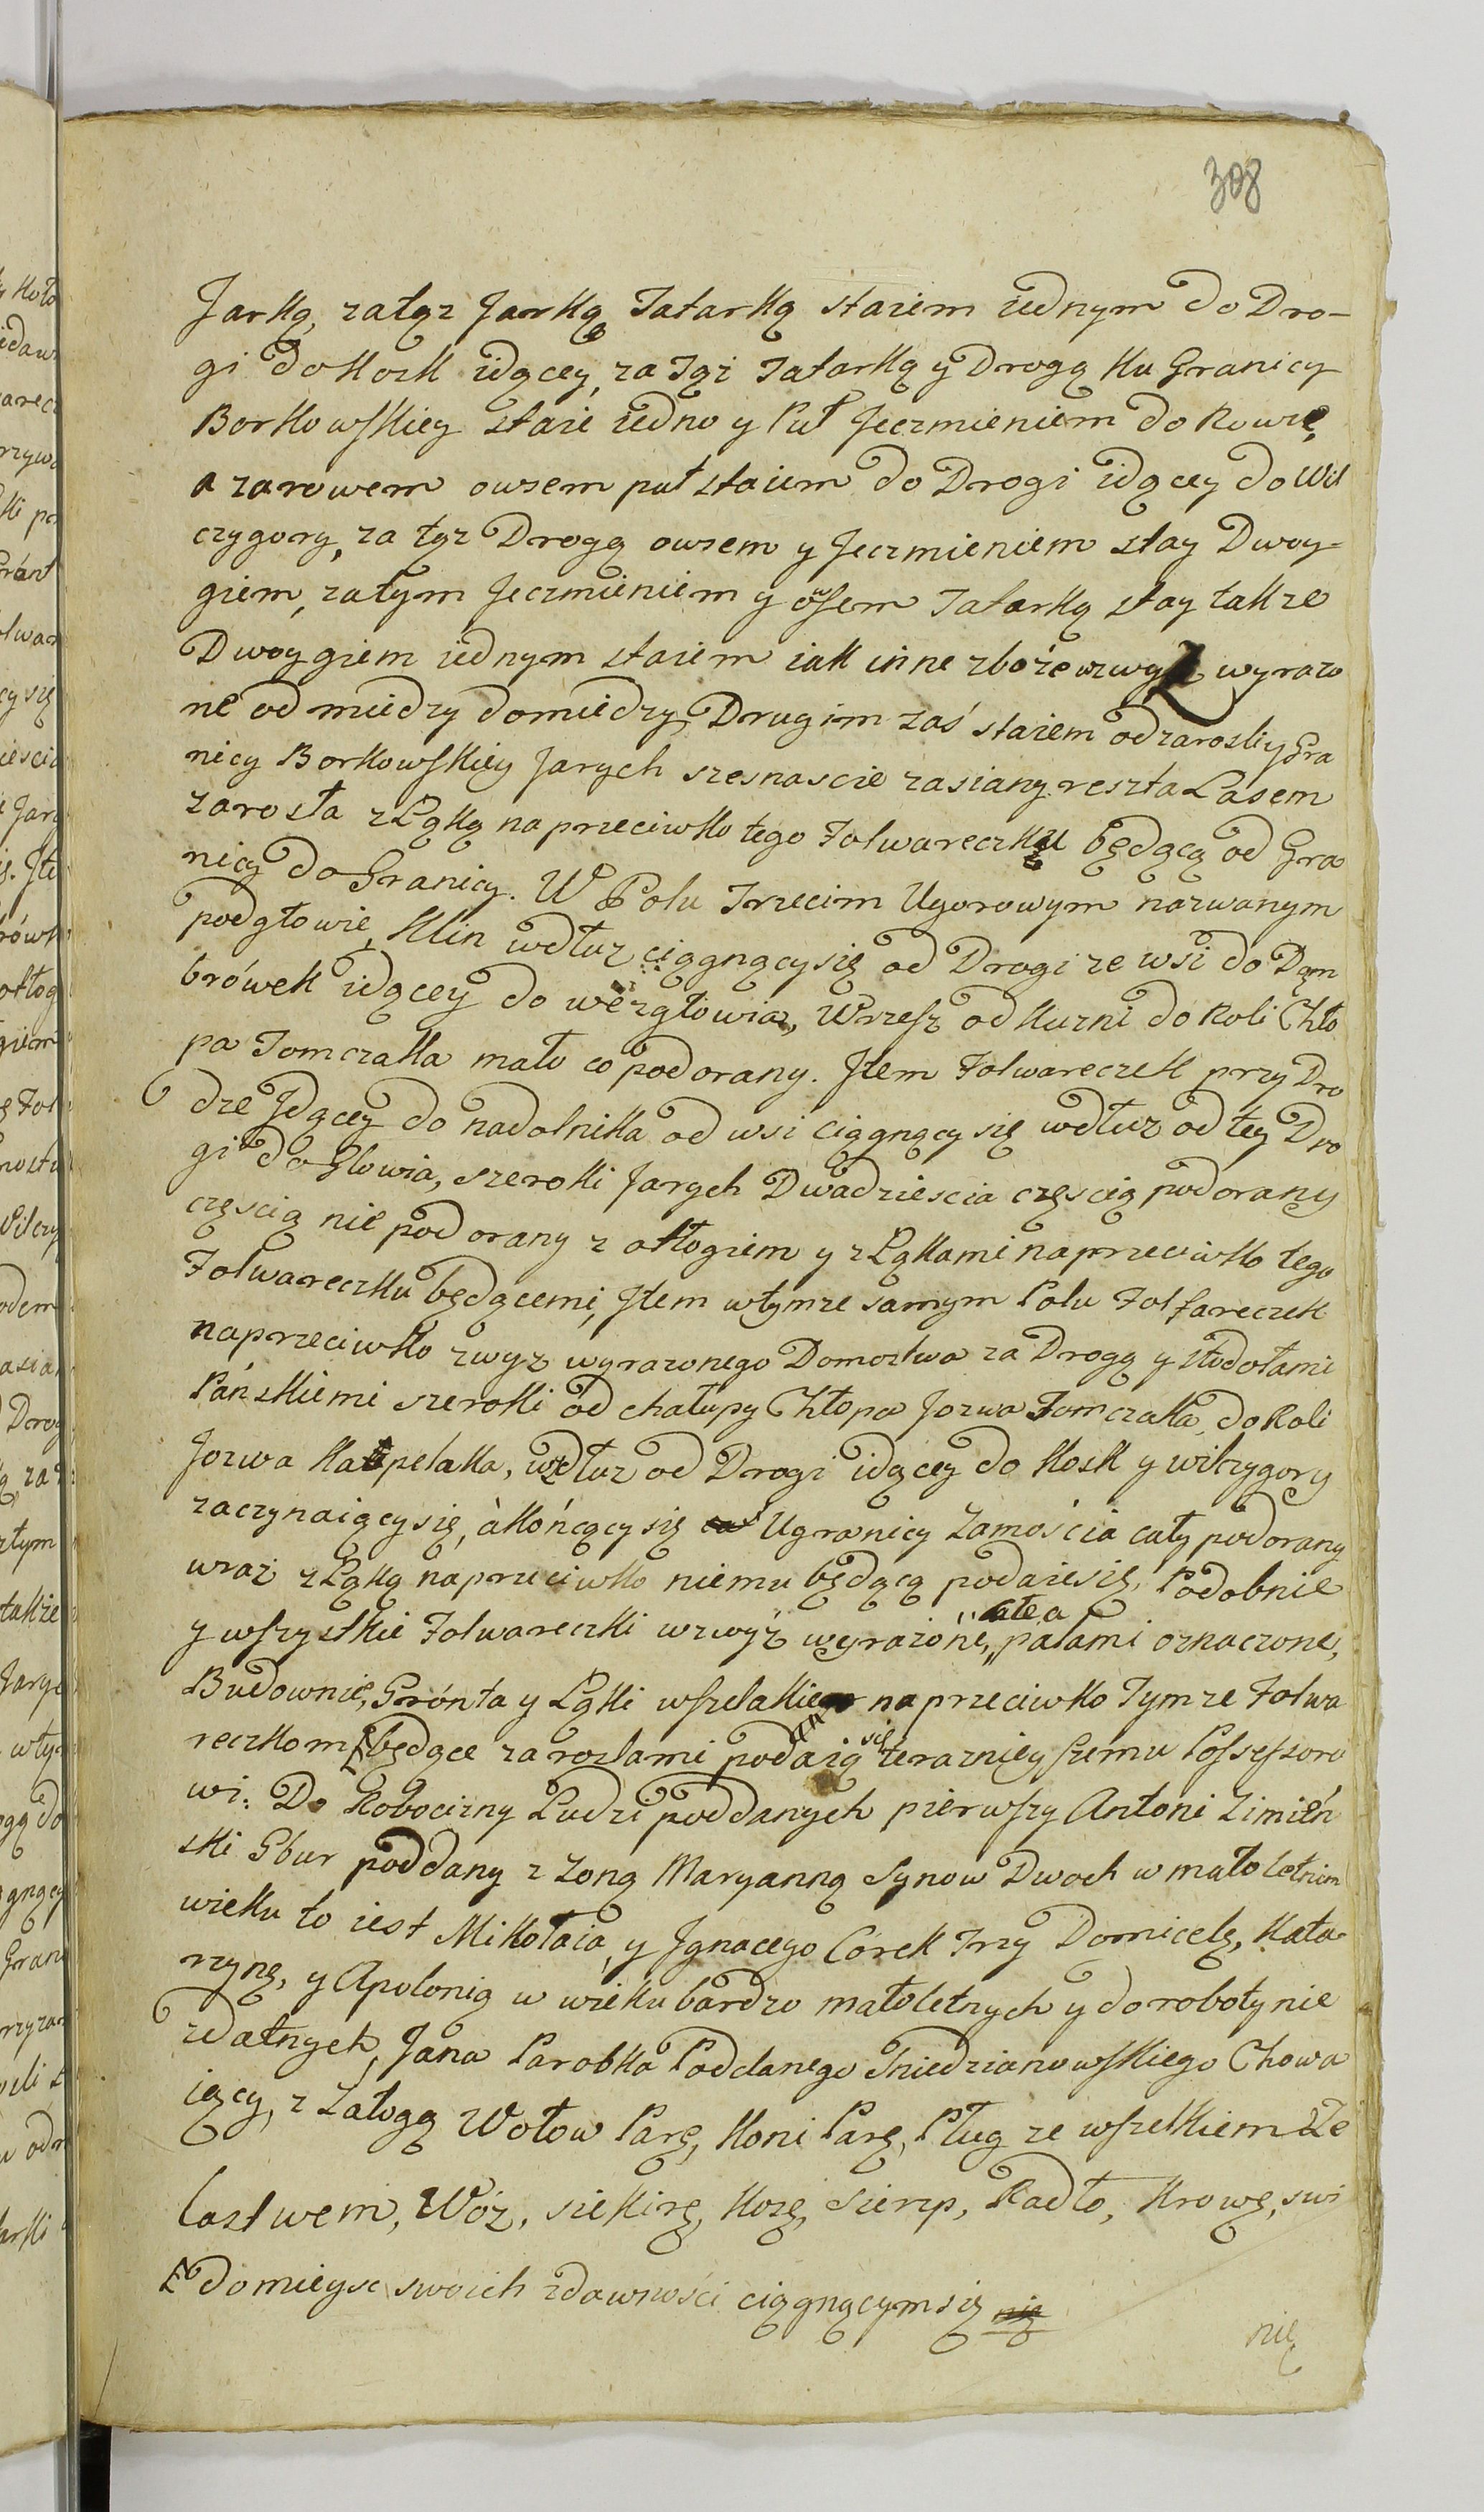 308
Jarką, zatąz Jarką Tatarką staiem iednym do Dro-
gi do Kosk idącey, za Tąż Tatarką y Drogą ku Granicy
Borkowskiey staie iedno y Puł Jęczmieniem do Rowu,
a zarowem owsem puł staium do Drogi idącey do Wil
czygory, za tąz Drogą owsem y Jęczmieniem stay Dwoy-
giem, zatym Jęczmieniem y owsem Tatarką stay takze
Dwoygiem iednym staiem iak inne zboże wzwyż wyrazo
ne od miedzy do miedzy, Drugim zaś staiem od zarosli y Gra
nicy Borkowskiey Jarych szesnascie zasiany reszta Lasem
zarosła z Łąką na przeciwko tego Folwareczku będącą od Gra
nicy do Granicy. W Polu Trzecim Ugorowym nazwanym
podgłowie, Klin wdłuz ciągnący się od Drogi ze wsi do Dąm
brówek idącey do wezgłowia, Wszesz od Kuzni do Roli Chło
pa Tomczaka mało co podorany. Jtem Folwareczek przy Dro
dze Jdącey do nadolnika od wsi ciągnący się wdłuz od tey Dro
gi do Głowia, szeroki Jarych Dwadziescia częscią podorany
częscią nie podorany z odłogiem y z Łąkami naprzeciwko tego
Folwareczku będącemi, Jtem wtymze samym Polu Folfareczek
naprzeciwko zwyz wyrazonego Domostwa za Drogą y stodołami
Pańskiemi szeroki od chałupy Chłopa Jozwa Tomczaka, do Roli
Jozwa Kapelaka, wzdłuz od Drogi idącey do Kosk y wilczygory
zaczynaiący się, à kończący się Ugranicy Zamościa cały podorany
wraz z Łąką naprzeciwko niemu będącą podaie się. Podobnie
y wszystkie Folwareczki wzwyż wyrażone, ate a palami oznaczone,
Budownie, Grónta y Łąki wszelakie naprzeciwko Tymze Folwa
reczkom będące zarozlami podaią się teraznieyszemu Possessoro
wi. Do Robocizny Ludzi poddanych pierwszy Antoni Zimień
ski Gbur poddany z Zoną Maryanną Synow Dwoch w małoletnim
wieku to iest Mikołaia, y Jgnacego Córek Trzy Domicelę, Kata-
rzynę, y Apolonią w wieku bardzo małoletnych y do roboty nie
zdatnych, Jana Parobka Poddanego Gniedzianowskiego Chowa
iący, z Załogą Wołow Parę, Koni Parę, Pług ze wszelkiem Że
lastwem, Wóz, siekirę, Kosę, Sierzp, Radło, Krowę, swi
do mieysc swoich zdawności ciągnącym się
nię